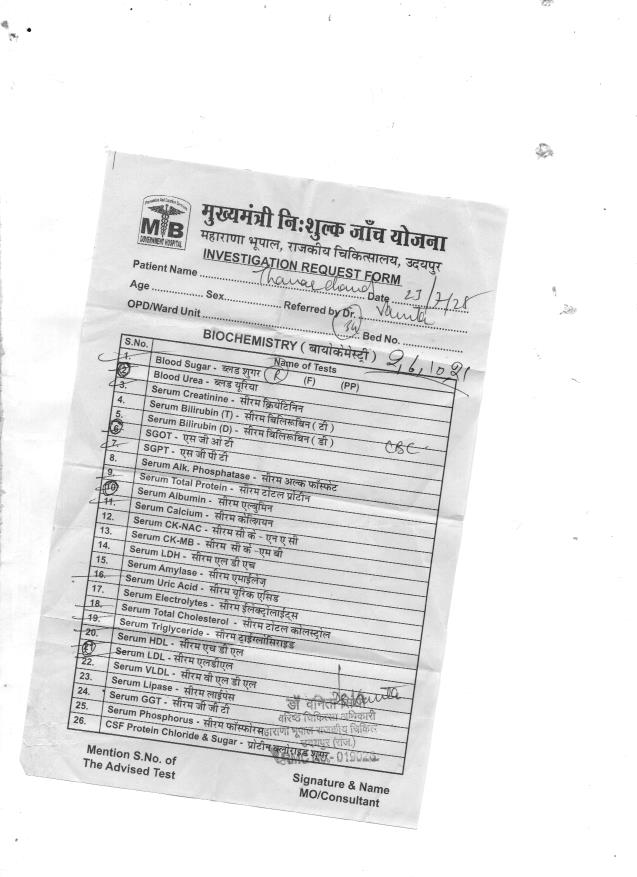 MB
GOVERNMENT HOSPITAL
मुख्यमंत्री निःशुल्क जाँच योजना
महाराणा भूपाल, राजकीय चिकित्सालय, उदयपुर
INVESTIGATION REQUEST FORM
Patient Name Date 23/7/25
Age Sex Referred by Dr. Vanita
OPD/Ward Unit Bed No.
BIOCHEMISTRY ( बायोकेमेस्ट्री )
S.No. Name of Tests
1. Blood Sugar - ब्लड शुगर (R) (F) (PP)
2 Blood Urea - ब्लड यूरिया
3. Serum Creatinine - सीरम क्रियटिनिन
4. Serum Bilirubin (T) - सीरम बिलिरूबिन ( टी )
5. Serum Bilirubin (D) - सीरम बिलिरूबिन ( डी )
6 SGOT - एस जी ओ टी CBC
7. SGPT - एस जी पी टी
8. Serum Alk. Phosphatase - सीरम अल्क फॉस्फेट
9. Serum Total Protein - सीरम टोटल प्रोटीन
10 Serum Albumin - सीरम एल्बुमिन
11. Serum Calcium - सीरम केल्शियन
12. Serum CK-NAC - सीरम सी के - एन ए सी
13. Serum CK-MB - सीरम सी के -एम बी
14. Serum LDH - सीरम एल डी एच
15. Serum Amylase - सीरम एमाईलेज्
16. Serum Uric Acid - सीरम यूरिक एसिड
17. Serum Electrolytes - सीरम ईलेक्ट्रोलाईट्स
18. Serum Total Cholesterol - सीरम टोटल कोलस्ट्रोल
19. Serum Triglyceride - सीरम ट्राईग्लिसिराइड
20. Serum HDL - सीरम एच डी एल
21 Serum LDL - सीरम एलडीएल
22. Serum VLDL - सीरम वी एल डी एल
23. Serum Lipase - सीरम लाईपेस
24. Serum GGT - सीरम जी जी टी
25. Serum Phosphorus - सीरम फॉस्फोरस
26. CSF Protein Chloride & Sugar - प्रोटीन क्लोराइड शुगर
डॉ वनिता
वरिष्ठ चिकित्सा अधिकारी
महाराणा भूपाल राजकीय चिकित्
उदयपुर (राज.)
Mention S.No. of
The Advised Test
Signature & Name
MO/Consultant